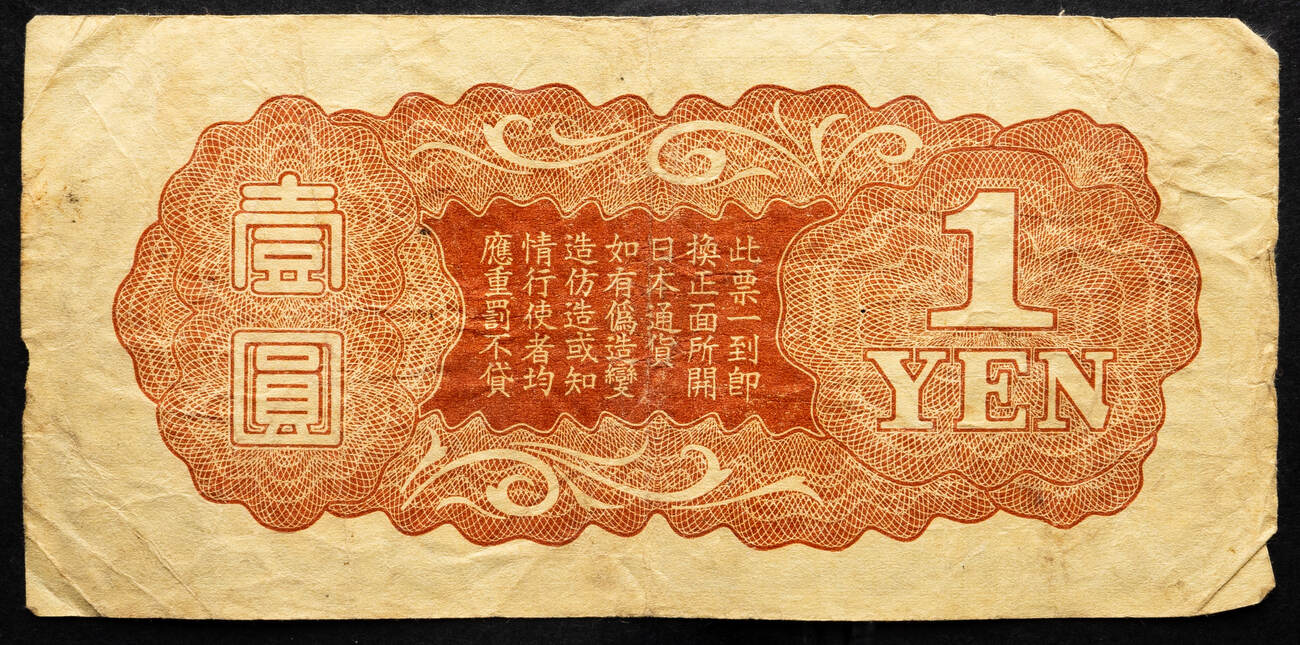 此票一到即
換正面所開
日本通貨
如有偽造變
造仿造或知
情行使者均
應重罰不貸
壹圓
1
YEN